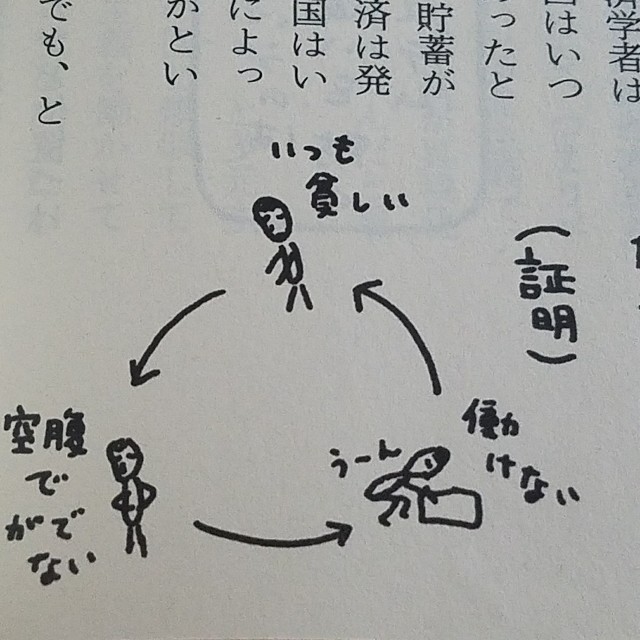 済学者は
国はいつ
ったと
貯蓄が
済は発
国はい
によっ
かとい
でも、と
(証明)
いつも
貧しい
空腹
で
がで
ない
うーん
働
けない